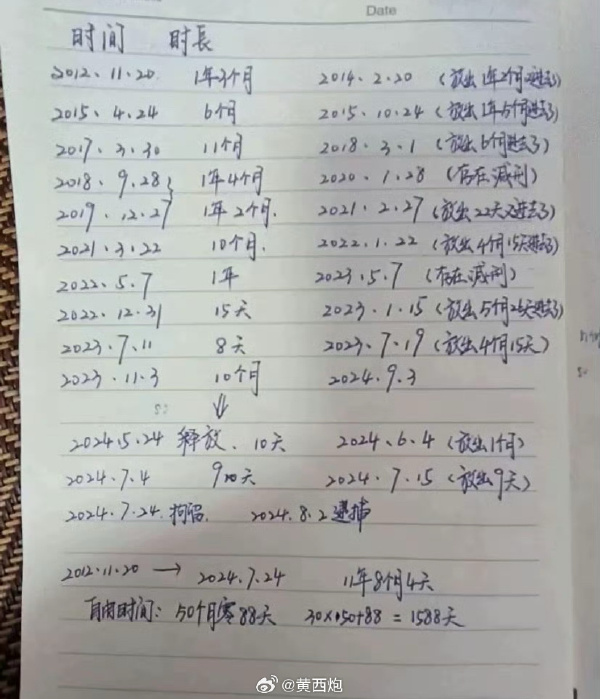 Date
时间 时长
2012.11.20 1年3个月 2014.2.20 (放出1年2个月进去了)
2015.4.24 6个月 2015.10.24 (放出1年5个月进去了)
2017.3.30 11个月 2018.3.1 (放出6个月进去了)
2018.9.28; 1年4个月 2020.1.28 (存在减刑)
2019.12.27 1年2个月. 2021.2.27 (放出22天又进去了)
2021.3.22 10个月. 2022.1.22 (放出4个月15天进去了)
2022.5.7 1年 2023.5.7 (存在减刑)
2022.12.31 15天 2023.1.15 (放出5个月26天进去了)
2023.7.11 8天 2023.7.19 (放出4个月15天)
2023.11.3 10个月 2024.9.3
↓
2024.5.24 释放、10天 2024.6.4 (放出1个月)
2024.7.4 天 2024.7.15 (放出9天)
2024.7.24.拘留. 2024.8.2 逮捕
2012.11.20 → 2024.7.24 11年8个月4天
自由时间: 50个月零88天 30×50+88 = 1588天
@黄西炮